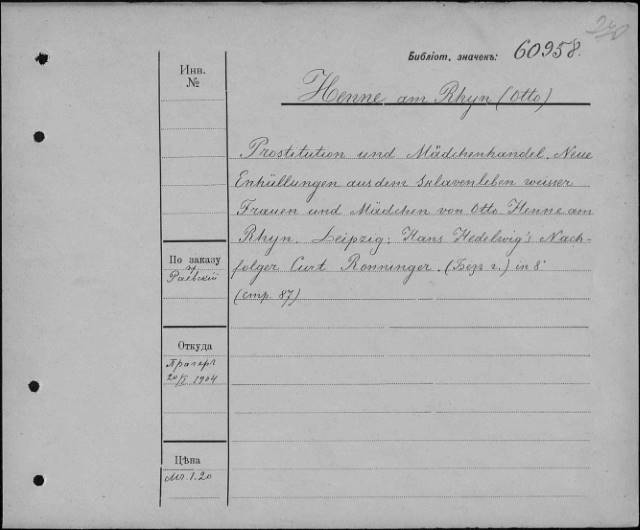 240
Библіот. значекъ: 60958.
Инв.
№
Henne am Rhyn (Otto)
Prostitution und Mädchenhandel. Neue
Enhüllungen aus dem Sklavenleben weisser
Frauen und Mädchen von Otto Henne am
Rhyn. Leipzig; Hans Hedelwig's Nach-
folger Curt Ronninger. (Безъ г.) in 8°
(стр. 87)
По заказу
гр
Раевскій
Откуда
Прагеръ
20/I 1904
Цѣна
Мк. 1.20